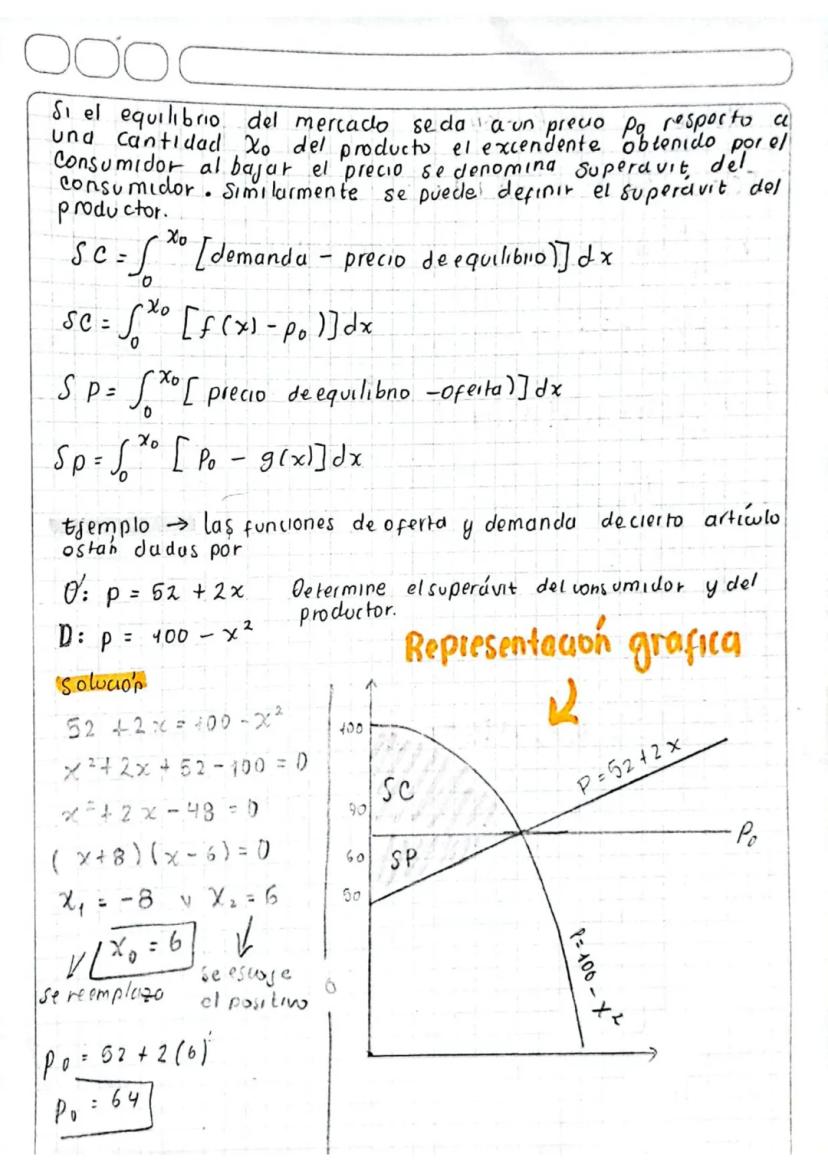 Si el equilibrio del mercado se da a un precio p₀ respecto a
una cantidad x₀ del producto el excendente obtenido por el
consumidor al bajar el precio se denomina superávit del
consumidor. Similarmente se puede definir el superávit del
productor.
SC = ∫₀^x₀ [demanda - precio de equilibrio)] dx
SC = ∫₀^x₀ [f(x) - p₀)] dx
SP = ∫₀^x₀ [precio de equilibrio - oferta)] dx
Sp = ∫₀^x₀ [P₀ - g(x)] dx
Ejemplo → las funciones de oferta y demanda de cierto artículo
estan dadas por
O: p = 52 + 2x Determine el superávit del consumidor y del
productor.
D: p = 100 - x²
Representación grafica
Solución
52 + 2x = 100 - x²
x² + 2x + 52 - 100 = 0
x² + 2x - 48 = 0
(x+8)(x-6) = 0
x₁ = -8 v x₂ = 6
x₀ = 6
se reemplaza
se escoje
el positivo
p₀ = 52 + 2(6)
p₀ = 64
100
SC
90
60
SP
50
0
P = 52 + 2x
P₀
P = 100 - x²